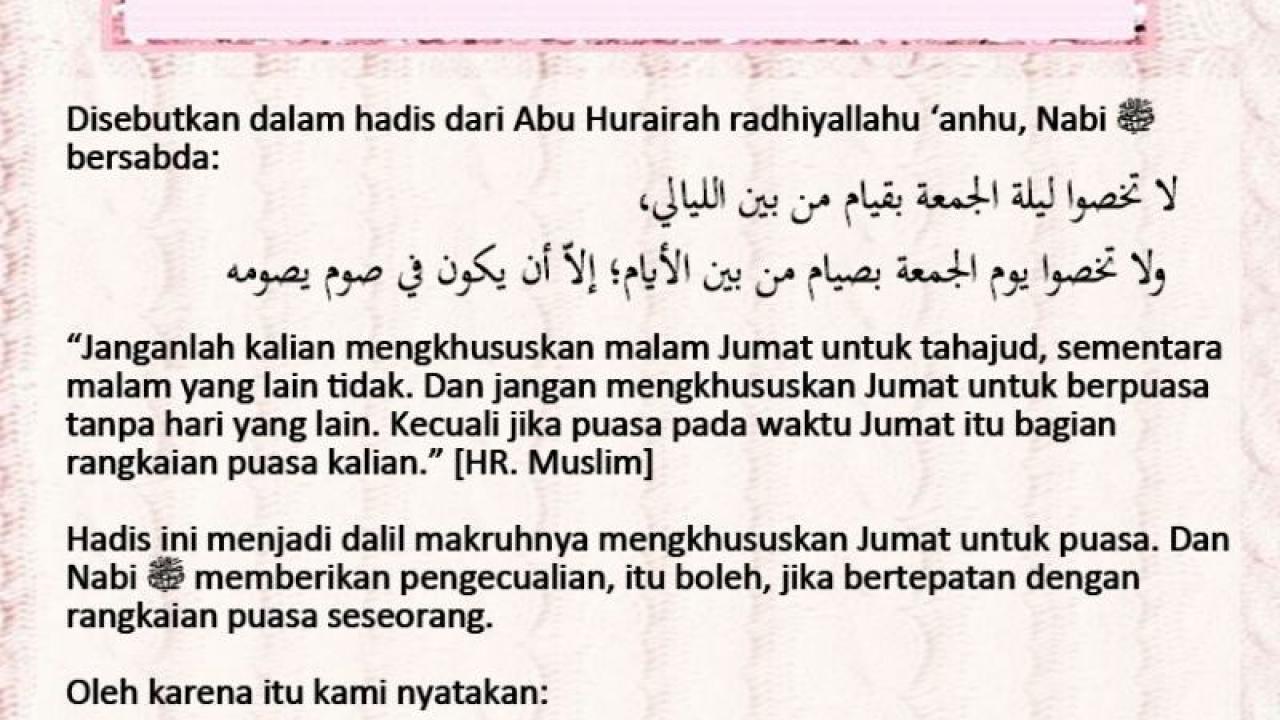 Disebutkan dalam hadis dari Abu Hurairah radhiyallahu ‘anhu, Nabi ﷺ
bersabda:
لا تخصوا ليلة الجمعة بقيام من بين الليالي،
ولا تخصوا يوم الجمعة بصيام من بين الأيام؛ إلاّ أن يكون في صوم يصومه
“Janganlah kalian mengkhususkan malam Jumat untuk tahajud, sementara
malam yang lain tidak. Dan jangan mengkhususkan Jumat untuk berpuasa
tanpa hari yang lain. Kecuali jika puasa pada waktu Jumat itu bagian
rangkaian puasa kalian.” [HR. Muslim]
Hadis ini menjadi dalil makruhnya mengkhususkan Jumat untuk puasa. Dan
Nabi ﷺ memberikan pengecualian, itu boleh, jika bertepatan dengan
rangkaian puasa seseorang.
Oleh karena itu kami nyatakan: